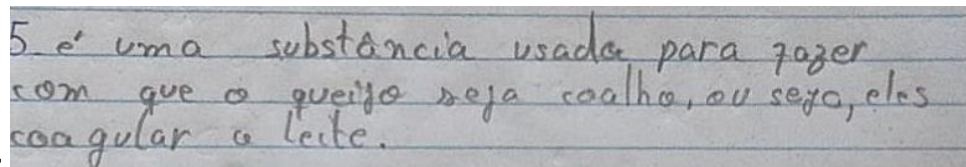 5- é uma substância usada para fazer
com que o queijo seja coalho, ou seja, eles
coagular o leite.